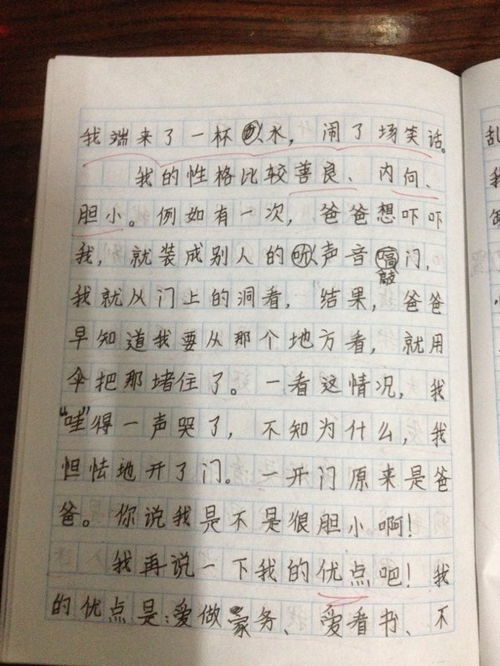 我端来了一杯水，闹了场笑话。
我的性格比较善良、内向、
胆小。例如有一次，爸爸想吓吓
我，就装成别人的声音敲门，
我就从门上的洞看，结果，爸爸
早知道我要从那个地方看，就用
伞把那堵住了。一看这情况，我
“哇”得一声哭了，不知为什么，我
怛怯地开了门。一开门原来是爸
爸。你说我是不是很胆小啊！
我再说一下我的优点吧！我
的优点是：爱做家务、爱看书、不
乱